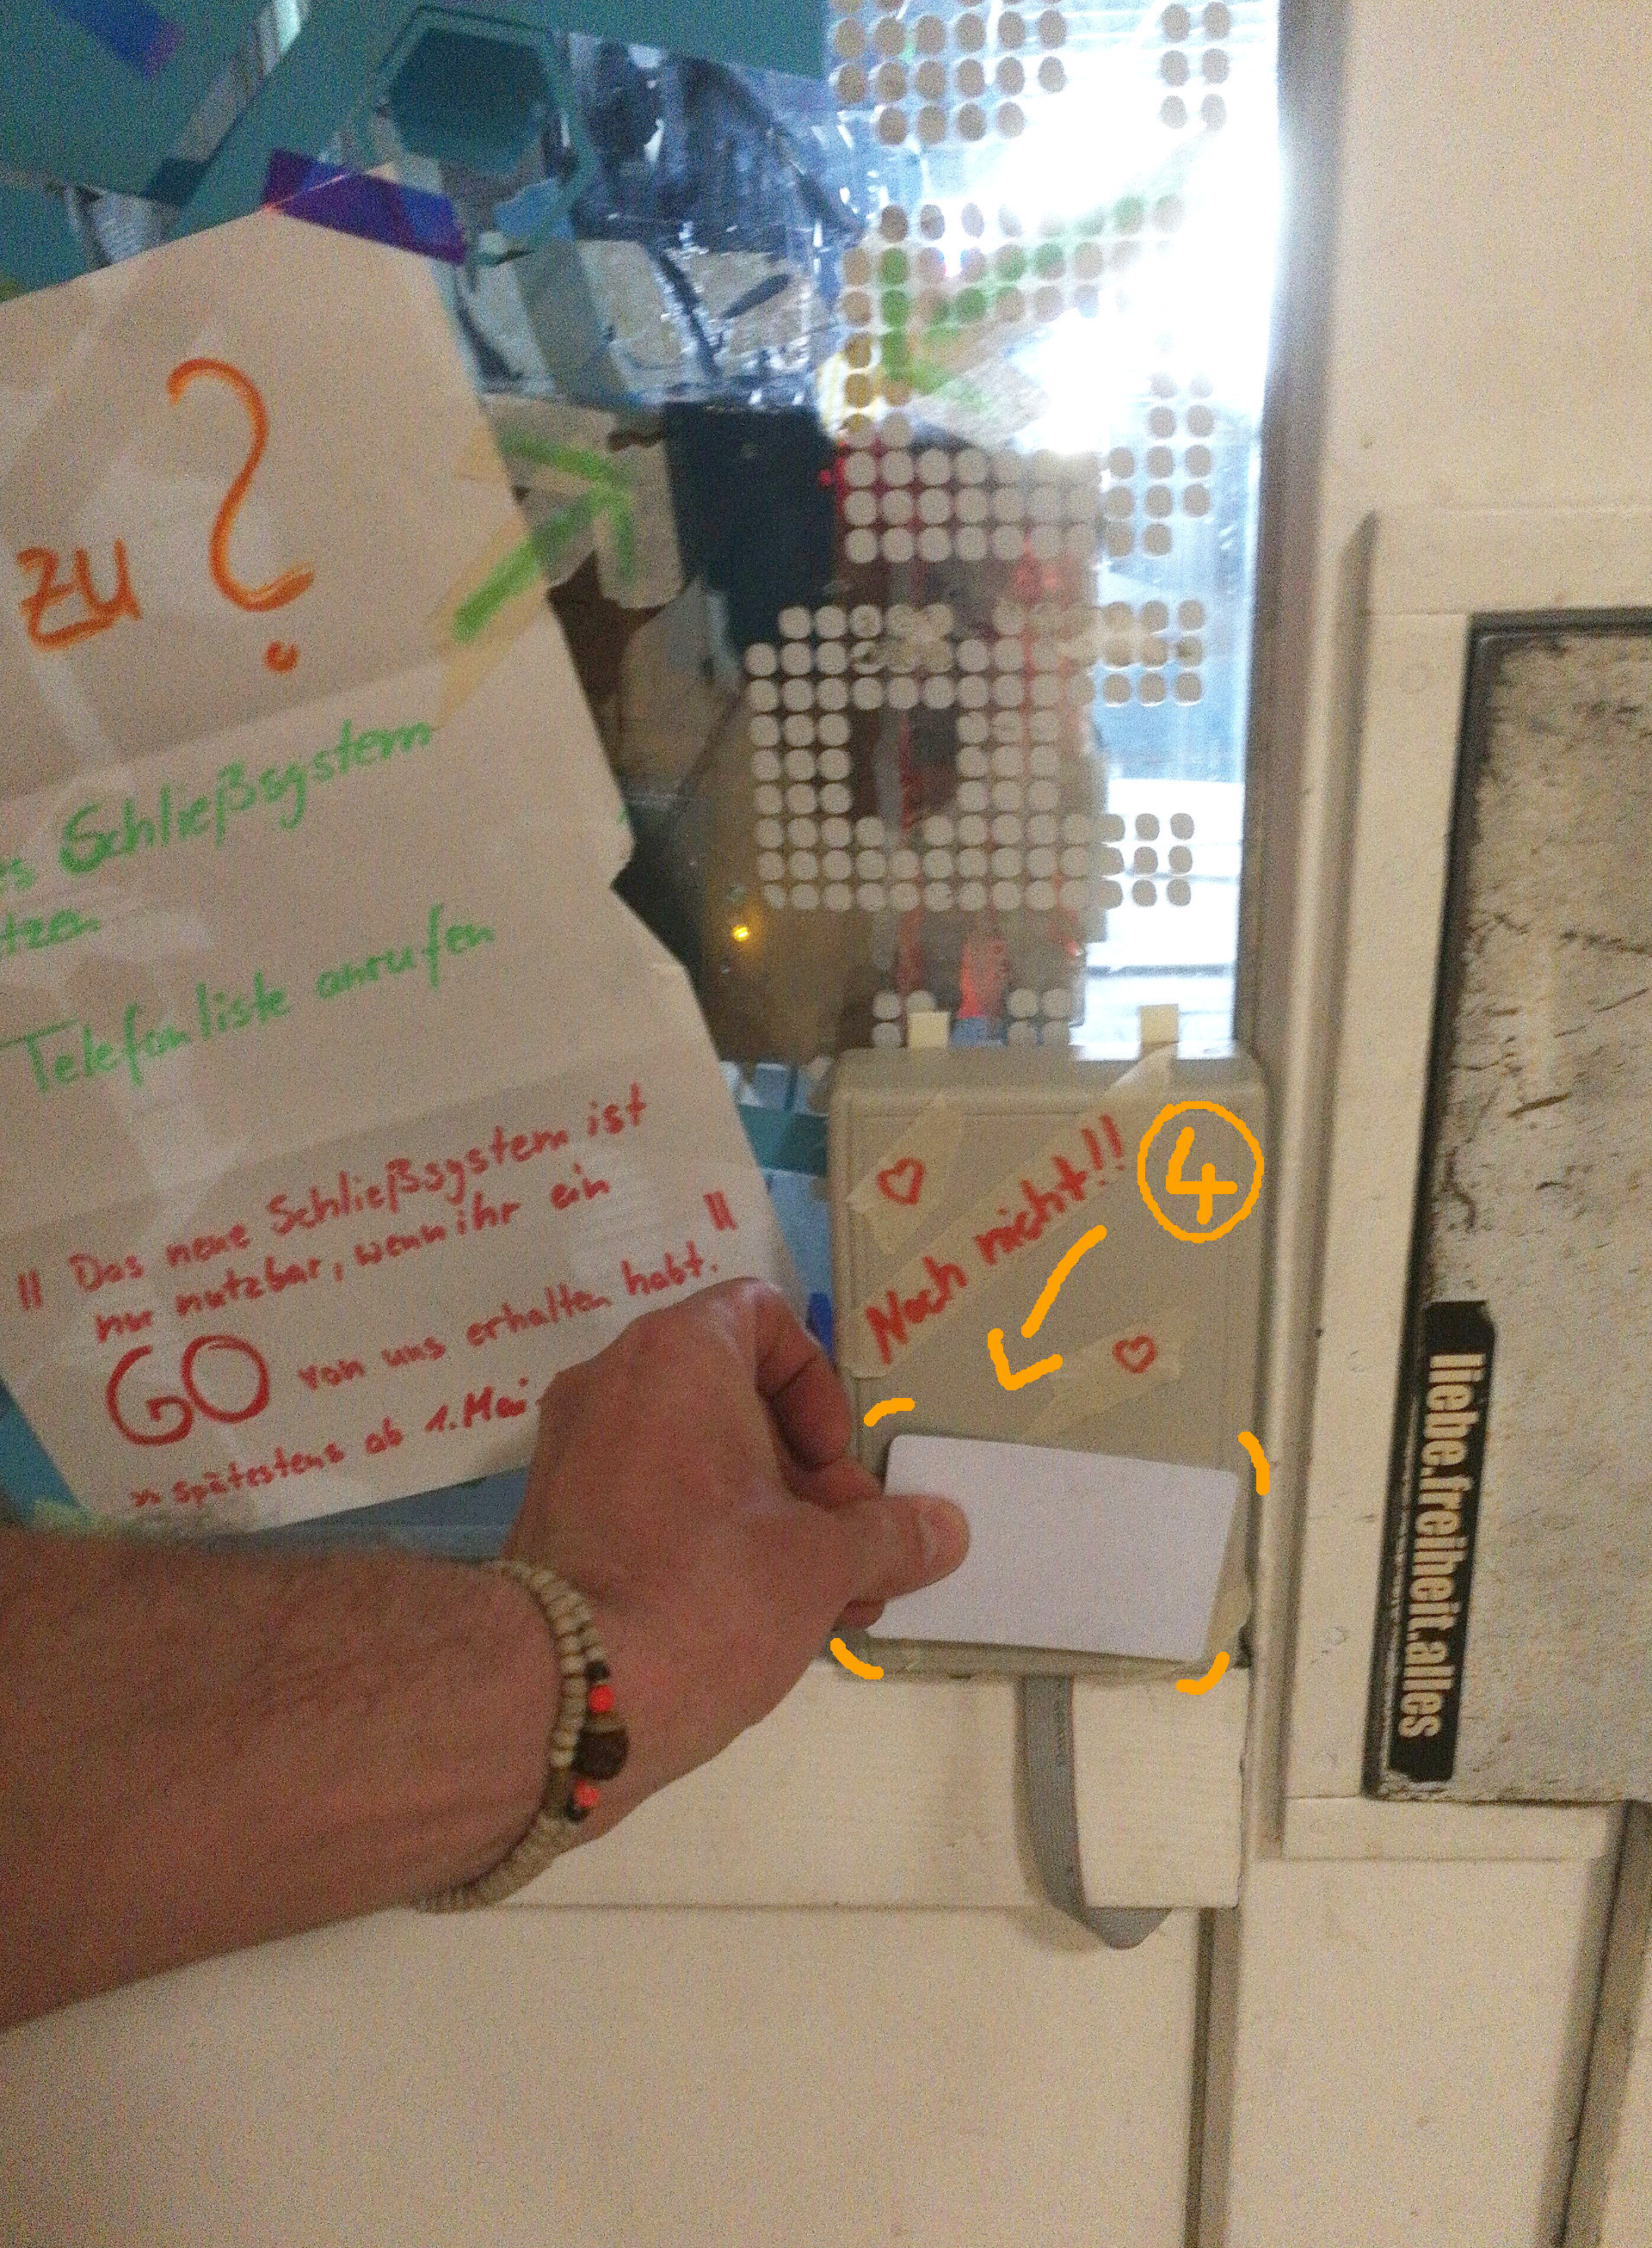 zu ?
Schließsystem
Telefonliste anrufen
!! Das neue Schließsystem ist
nur nutzbar, wenn ihr ein
GO von uns erhalten habt. !!
>> spätestens ab 1. Mai.
Noch nicht!!
4
liebe.freiheit.alles